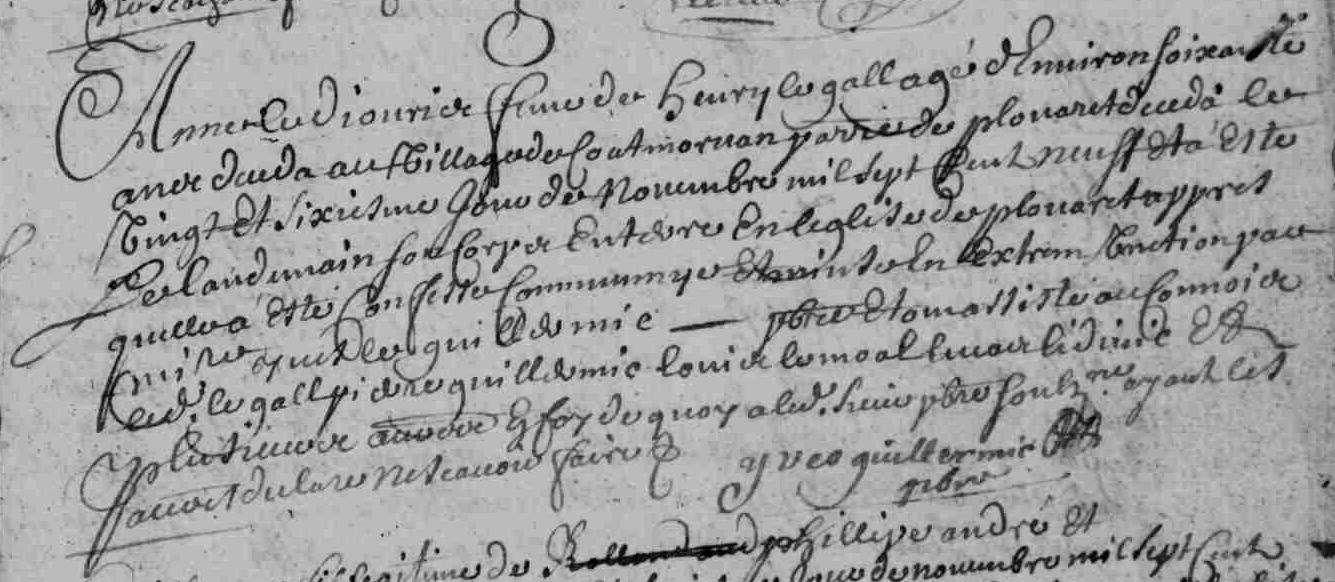 Anne le diouris feme de Henry le gall agé d'Enuiron soixante
anes deceda au Village de Coatmoruan parrie de plouaret deceda le
Vingt Et sixiesme Jour de Nouembre mil sept Cent neuff Et a Este
Le landemain son Corps Enterre En leglise de plouaret appres
quelle a Este Confesse Communnye En Extrem Vnction par
mire yues le guillermic pbre Et ont assiste au Connois
led. le gall pierre guillermic louis le moal Et
plusieurs En foy de quoy a led. sieur pbre soubz.ne ayant les
autres declare ne scauoir faire
yves guillermic
pbre
de phillipe andré Et
Jour de nouembre mil sept Cent